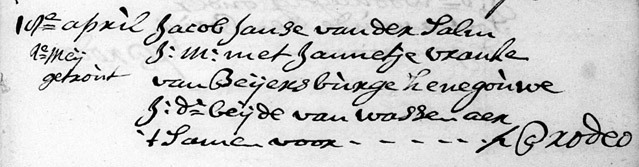 10de april Jacob Janse van der Salm
1e Meij J: M: met Jannetje vranke
getrout van Beijersburge henegouwe
J: d: beijde van wassenaer
't Samen voor - - - - - pro deo